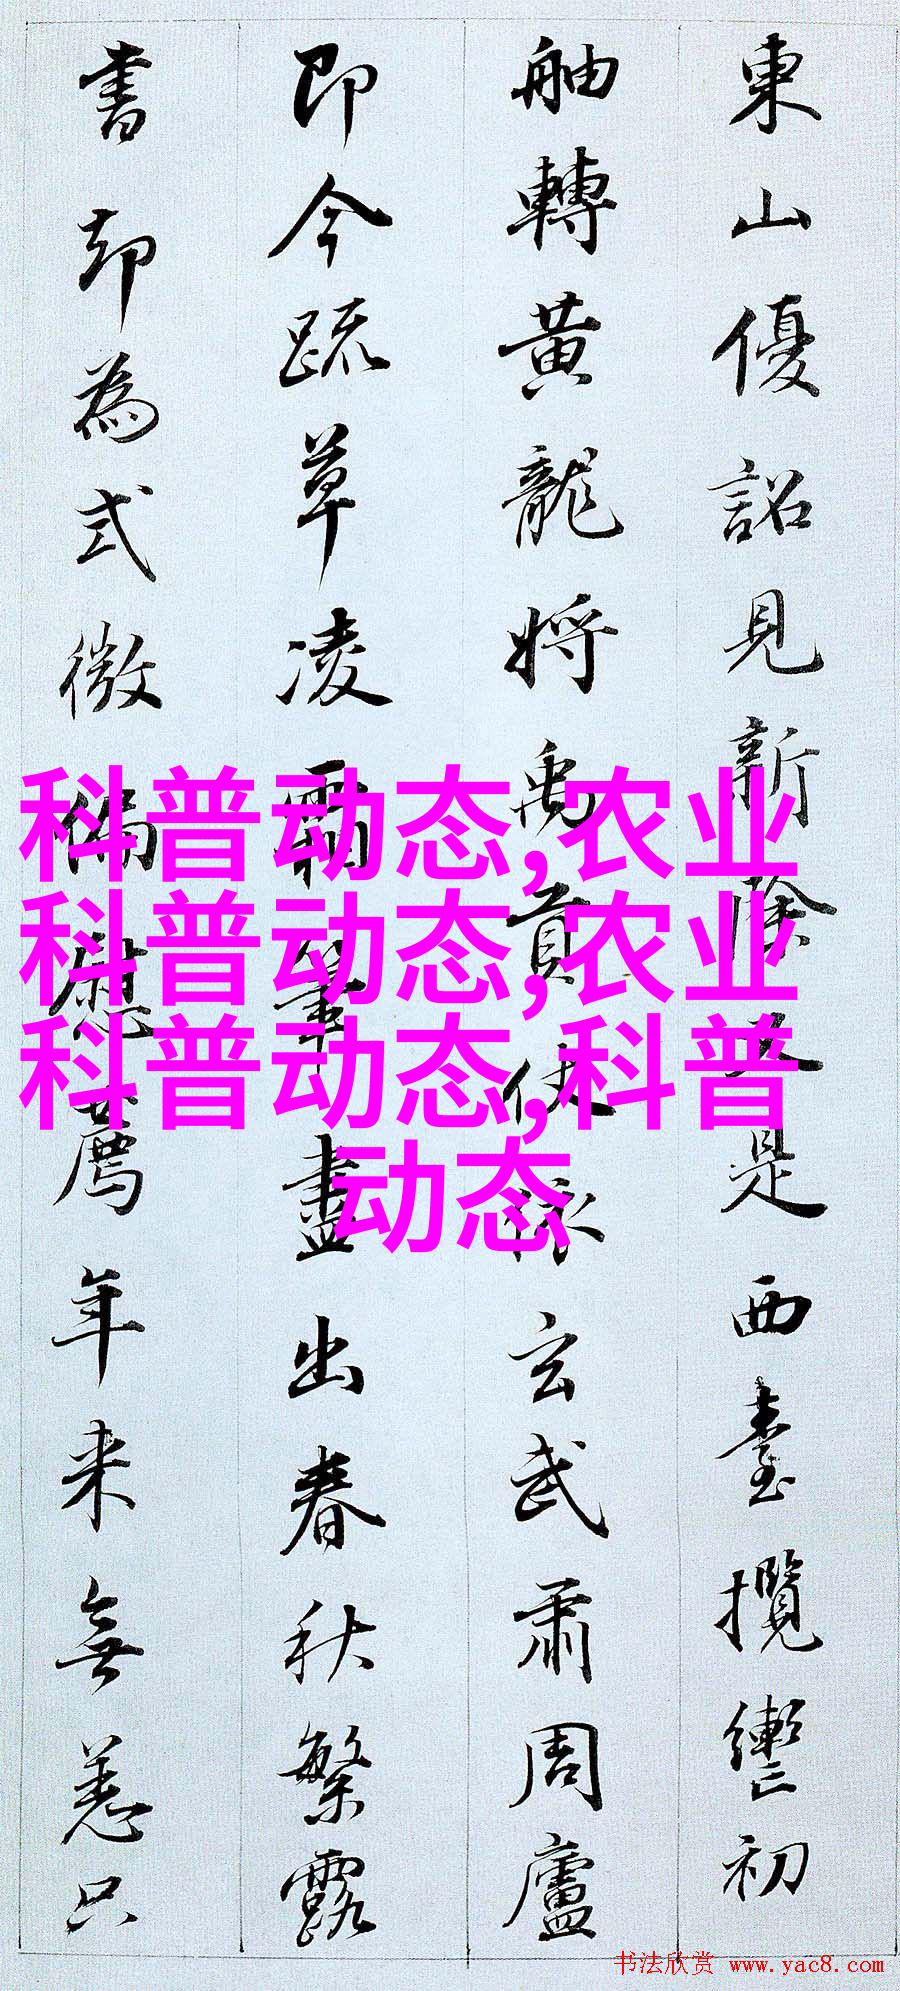 東山優詔見新除又是西臺攬轡初
舳轉黄龍將禹貢依玄武肅周廬
即今疏草凌霜筆盡出春秋繁露
書却為式微偏慰薦年来無恙只
科普动态,农业
科普动态,农业
科普动态,科普
动态
书法欣赏 www.yac8.com